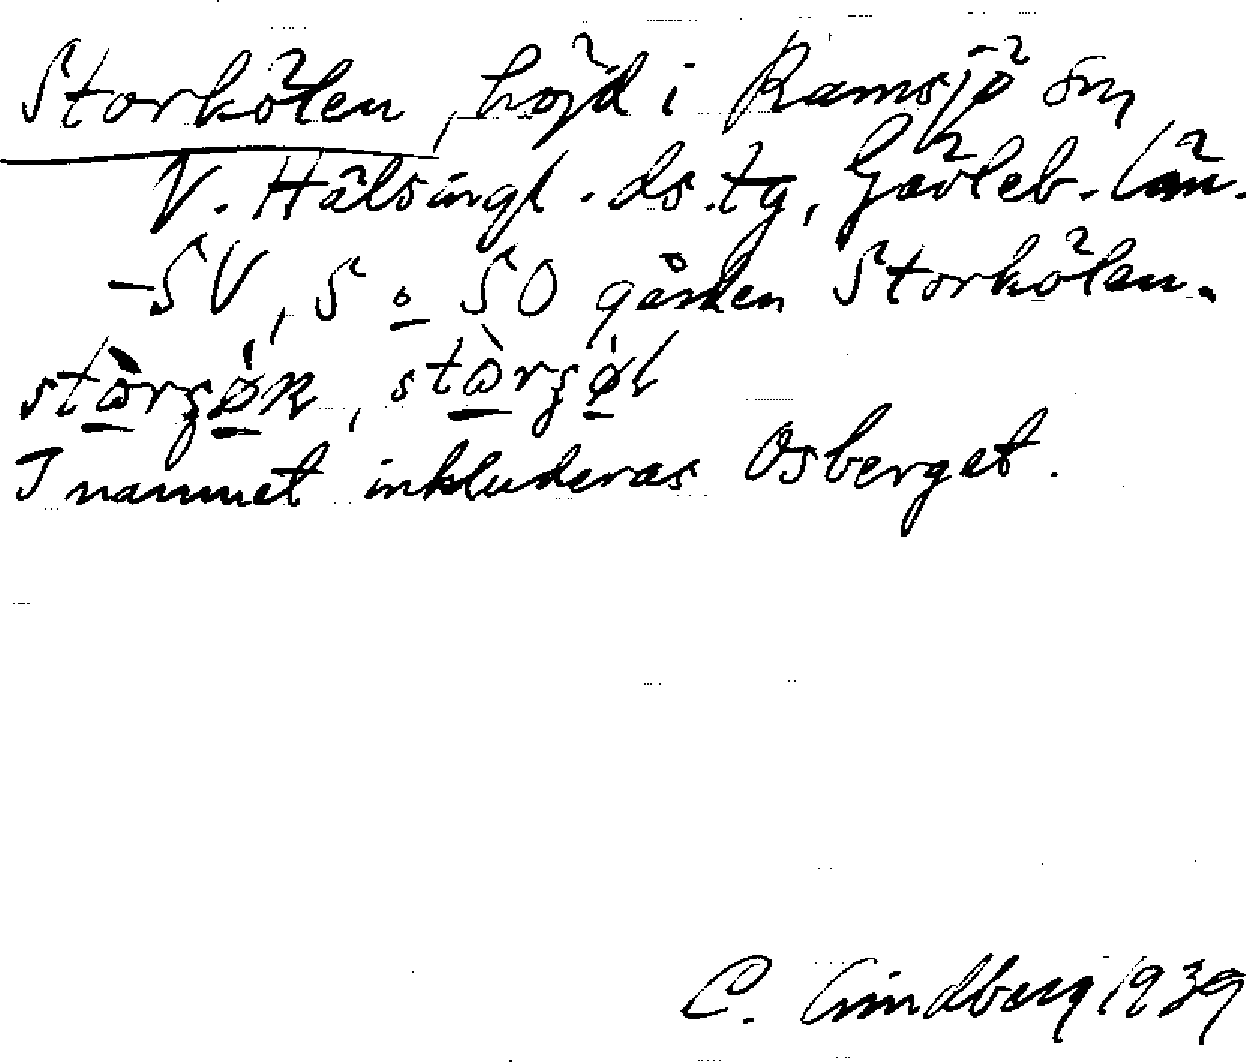 Storkölen, höjd i Ramsjö sn,
V. Hälsingl. ds. tg, Gävleb. län.
-SV, S o SO gården Storkölen.
I namnet inkluderas Osberget.
C. Lindberg 1939